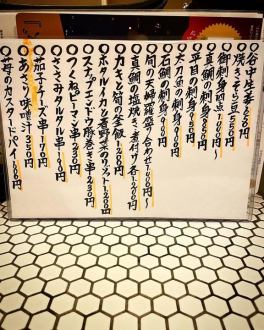 ○谷中生姜550円
○焼きそら豆550円
○御刺身四点1400円〜
○真鯛の刺身950円
○平目の刺身950円
○太刀魚の刺身
○石鯛の刺身
○旬の天婦羅盛り合わせ1400円〜
○真鯛の塩焼き・煮付け 各1,200円
○カキと筍の釜飯1,200円
○ホタルイカと春野菜のリゾット1,200円
○スナップエンドウ豚巻き串230円
○つくねピーマン串230円
○ささみタルタル串110円
○茄子チーズ串170円
○あさり味噌汁350円
○苺のカスタードパイ100円